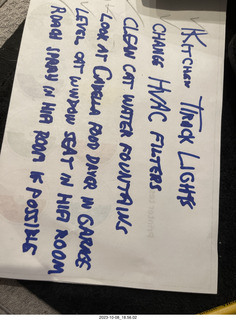 Kitchen Track Lights
Change HVAC Filters
Clean Cat Water Fountains
Look at Cruella Food Dryer in Garage
Level Cat Window Seat in HiFi Room
Roach Spray in HiFi Room if Possible
2023-10-08_18.56.02